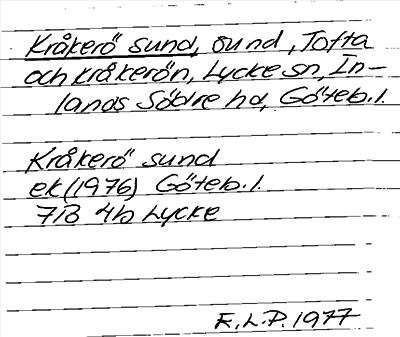 Kråkerö sund, sund, Tofta
och Kråkerön, Lycke sn, In-
lands Södre hd, Göteb. l.
Kråkerö sund
ek (1976) Göteb. l.
7B 4b Lycke
F.L.P. 1977